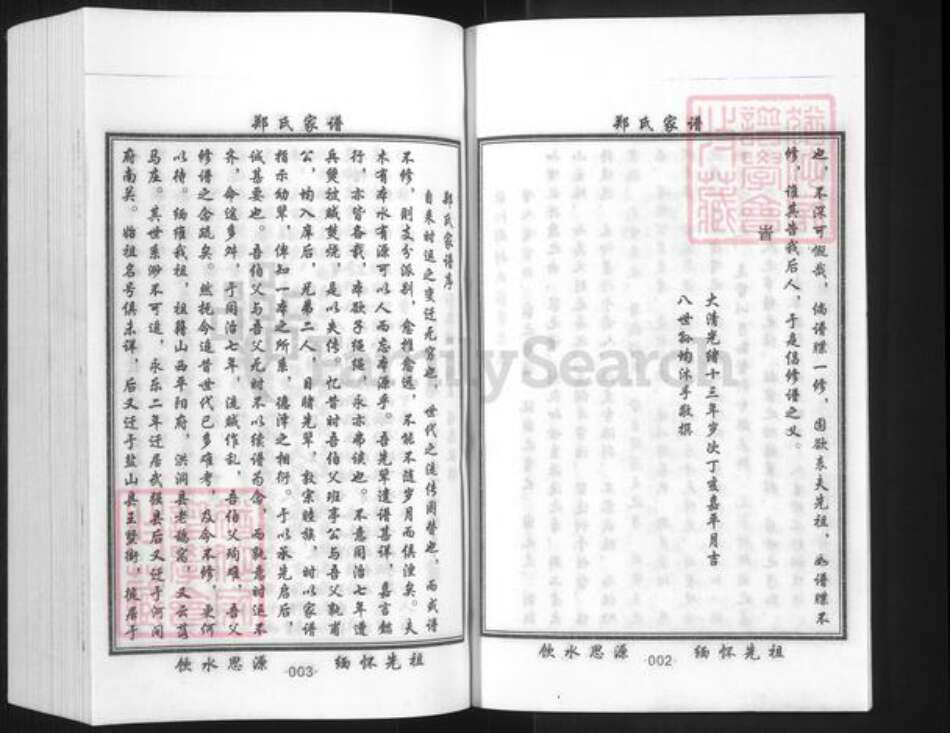 郑氏家谱
也，不深可慨哉，倘谱牒一修，固欲表夫先祖，而谱牒不
修，谁其告我后人，于是倡修谱之义。
大清光绪十三年岁次丁亥嘉平月吉
八世孙均沐手敬撰
缅怀先祖
·002·
饮水思源
郑氏家谱
郑氏家谱序
自来时运之变迁无穷也，世代之流传固替也，而或谱
不修，则支分派别，愈推愈远，不能不随岁月而俱湮矣。夫
木有本水有源可以人而忘本源乎。吾先辈遗谱甚详，嘉言懿
行，亦皆备载，本欲子绳绳，永亦弗谖也。不意同治七年遭
兵燹被贼焚烧，是以失传。忆昔时吾伯父班亭公与吾父执甫
公，均入庠后，兄弟二人，目睹先辈，敦宗睦族，时以家谱
指示幼辈，俾知一本之所系，德泽之相衍。于以承先启后，
诚甚要也。吾伯父与吾父无时不以续谱为念，而孰意时运不
齐，命途多舛，于同治七年，流贼作乱，吾伯父殉难，吾父
修谱之念疏矣。然抚今追昔世代已多难考，及今不修，更何
以待。缅维我祖，祖籍山西平阳府，洪洞县老鸹窝，又云落
马庄。其世系渺不可追，永乐二年迁居武强县后又迁于河间
府南关。始祖名号俱未详，后又迁于盐山县王贤街，卜居于
缅怀先祖
·003·
饮水思源
FamilySearch